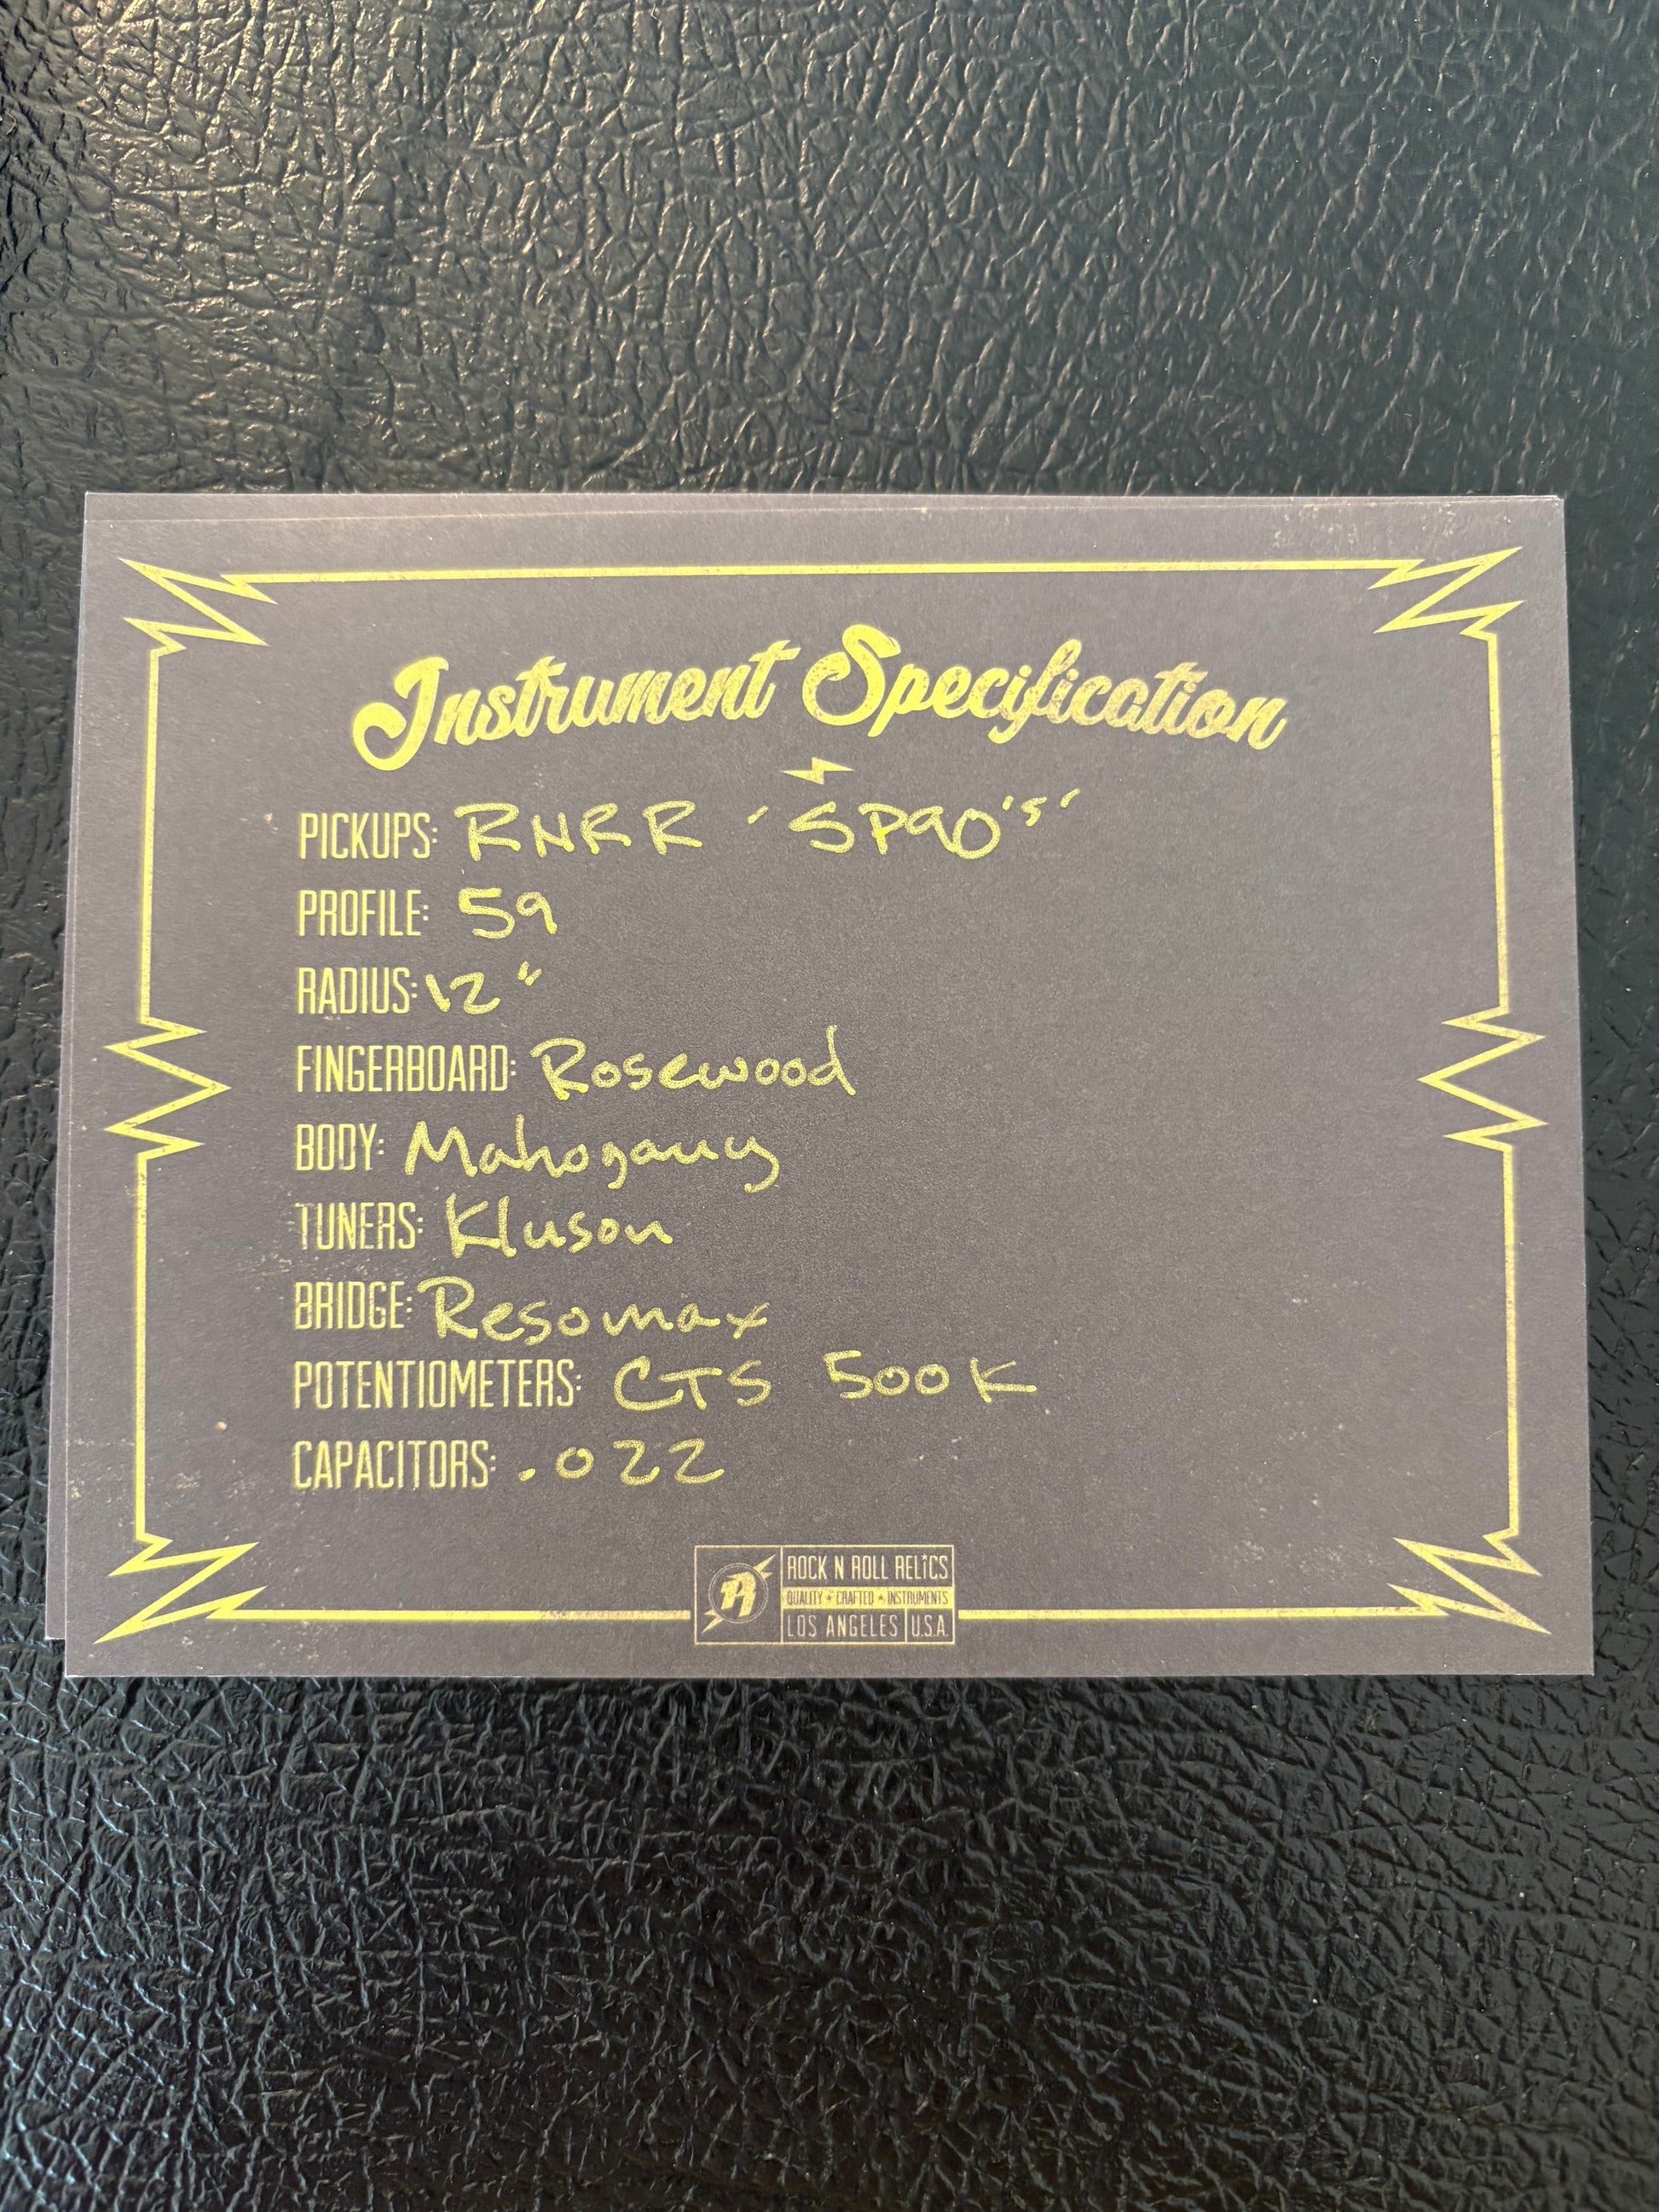 Instrument Specification
PICKUPS: RNRR 'SP90's'
PROFILE: 59
RADIUS: 12"
FINGERBOARD: Rosewood
BODY: Mahogany
TUNERS: Kluson
BRIDGE: Resomax
POTENTIOMETERS: CTS 500K
CAPACITORS: .022
R
ROCK N ROLL RELICS
QUALITY ★ CRAFTED ★ INSTRUMENTS
LOS ANGELES U.S.A.